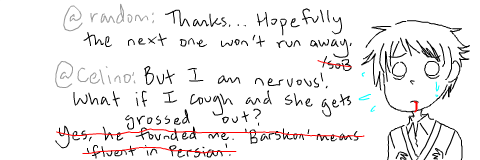 @random: Thanks... Hopefully
the next one won't run away.
/sob
@Celino: But I am nervous!
What if I cough and she gets
grossed out?
Yes, he founded me. 'Barskon' means
'fluent in Persian'.